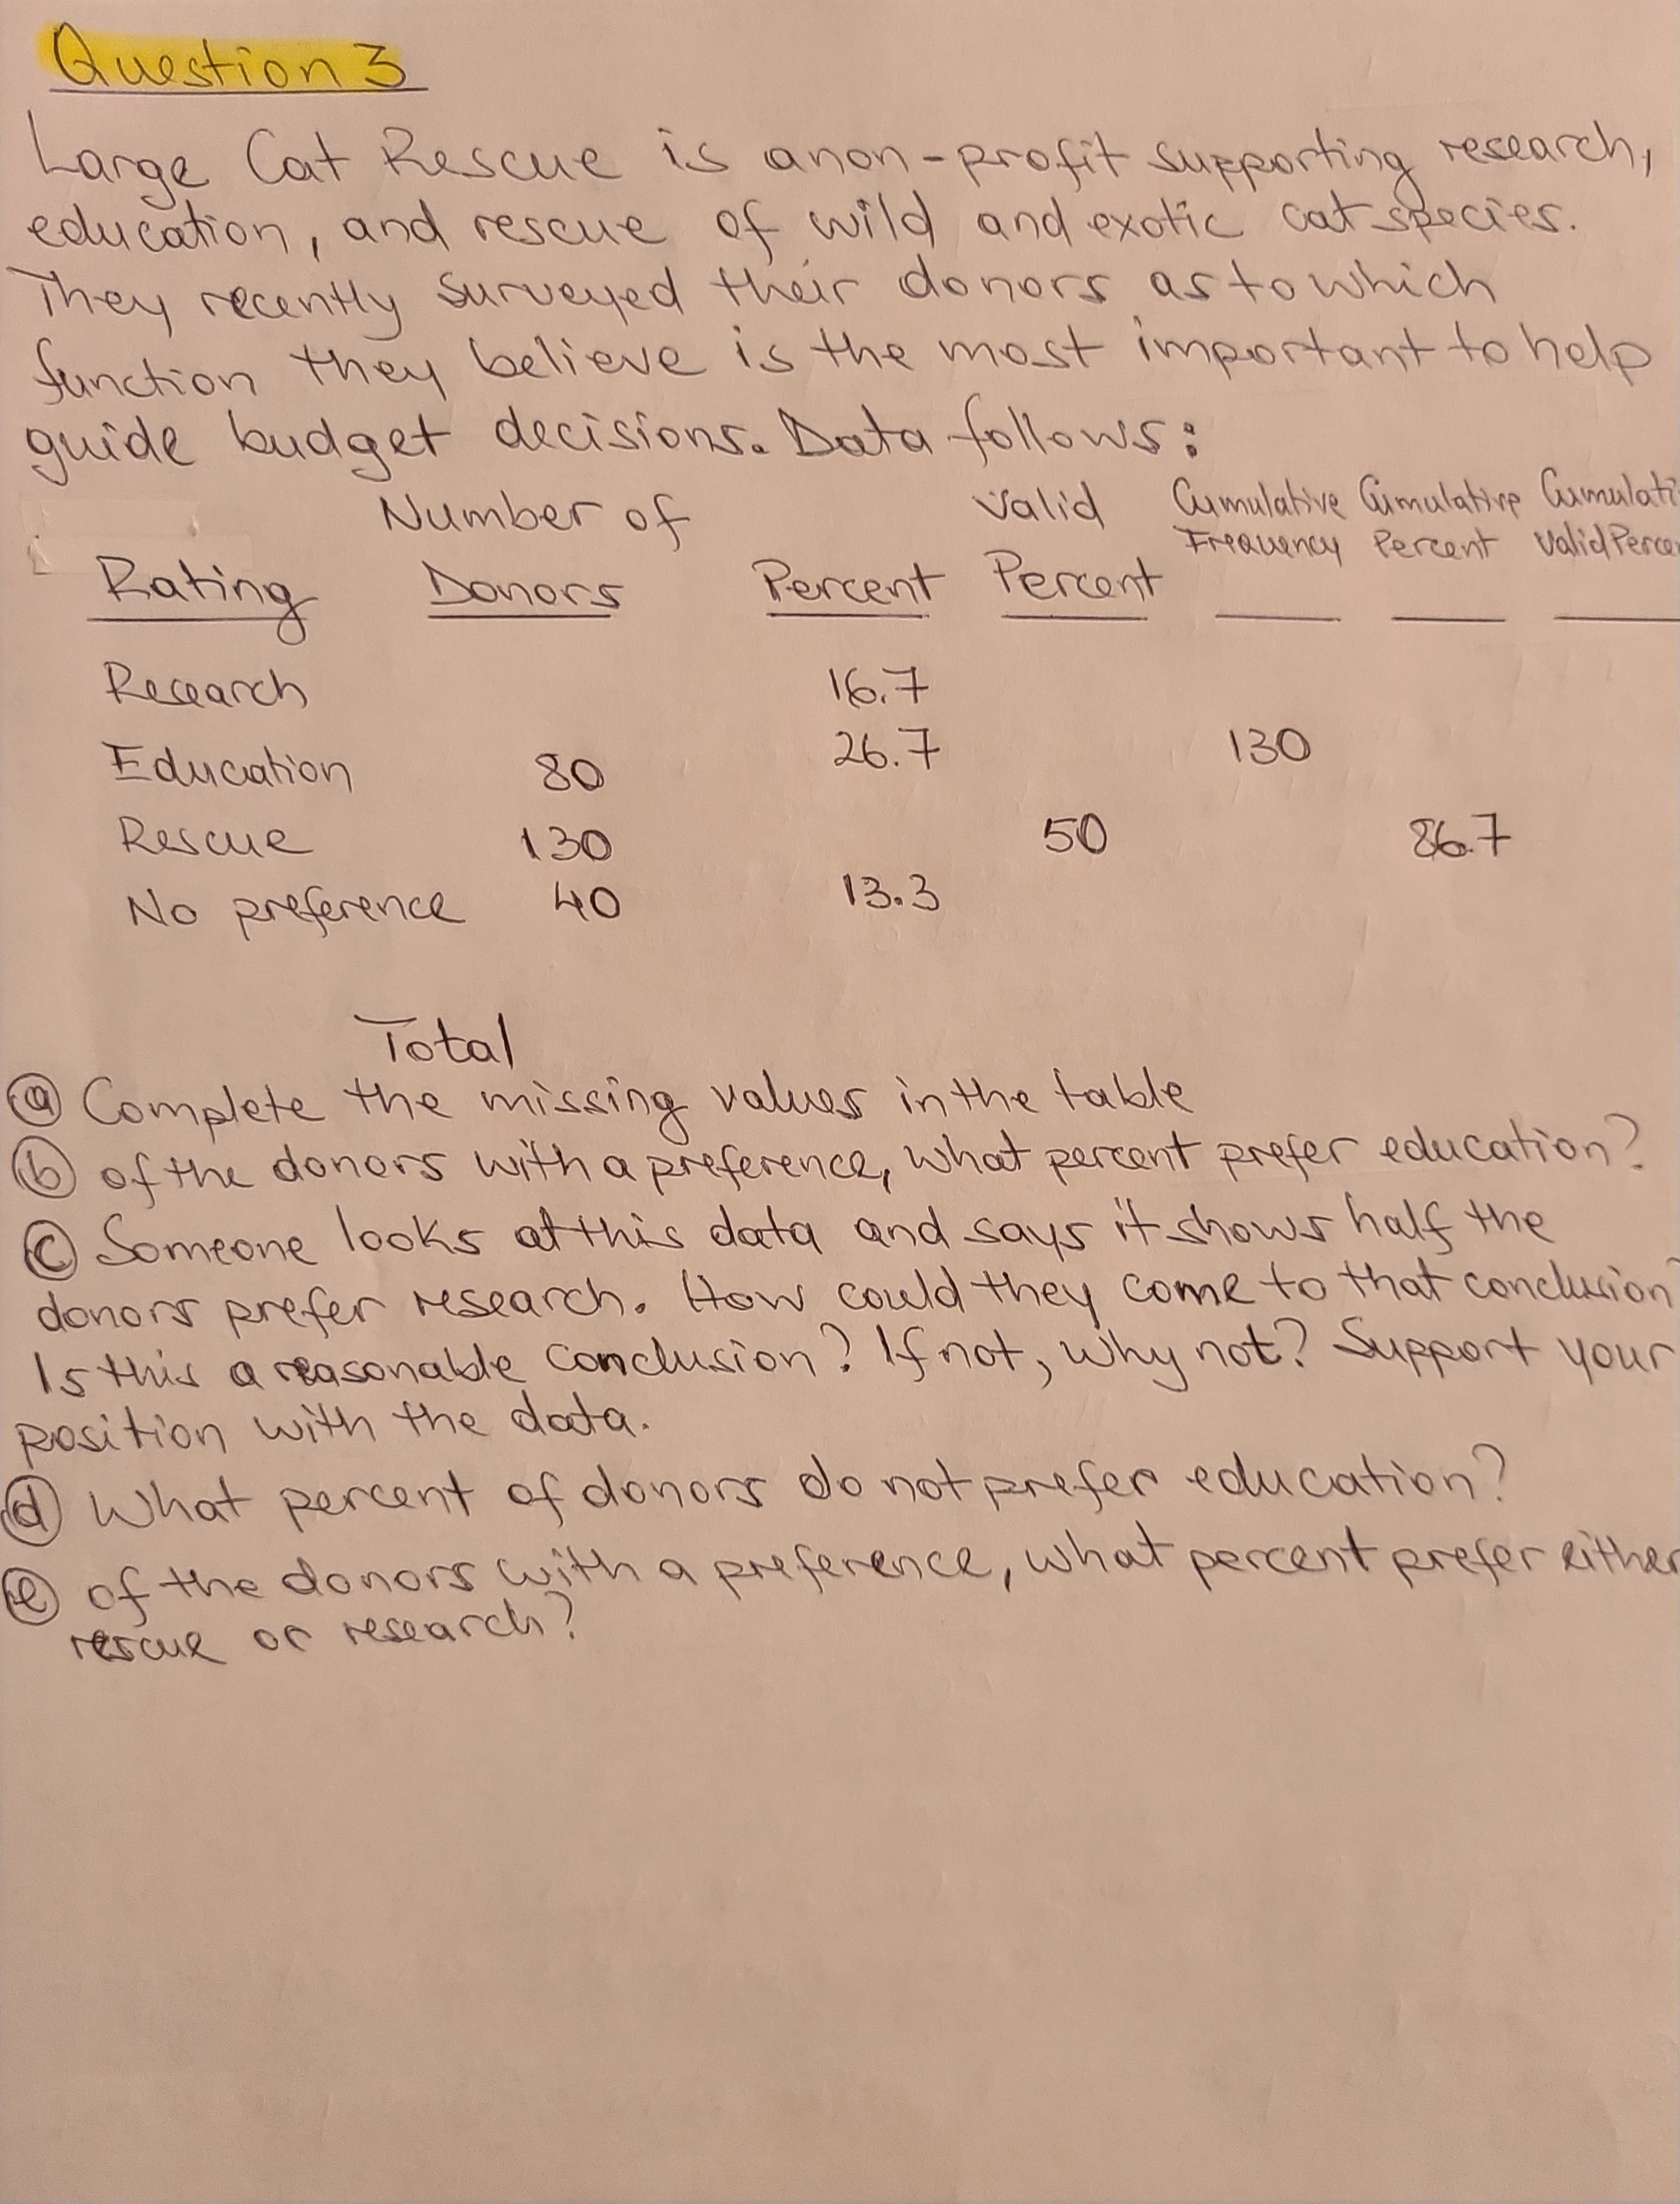 Question 3
Large Cat Rescue is a non-profit supporting research,
education, and rescue of wild and exotic cat species.
They recently surveyed their donors as to which
function they believe is the most important to help
guide budget decisions. Data follows:
Number of Valid Cumulative Cumulative Cumulati
Frequency Percent Valid Perce
Rating Donors Percent Percent
Research 16.7
Education 80 26.7 130
Rescue 130 50 86.7
No preference 40 13.3
Total
(a) Complete the missing values in the table
(b) of the donors with a preference, what percent prefer education?
(c) Someone looks at this data and says it shows half the
donors prefer research. How could they come to that conclusion?
Is this a reasonable conclusion? If not, why not? Support your
position with the data.
(d) What percent of donors do not prefer education?
(e) of the donors with a preference, what percent prefer either
rescue or research?